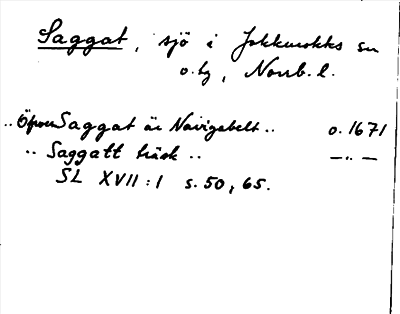 Saggat, sjö i Jokkmokks sn
o. tg, Norrb. l.
.. Öfwer Saggat är Navigabelt .. o. 1671
.. Saggatt träsk .. — .. —
SL XVII:1 s. 50, 65.